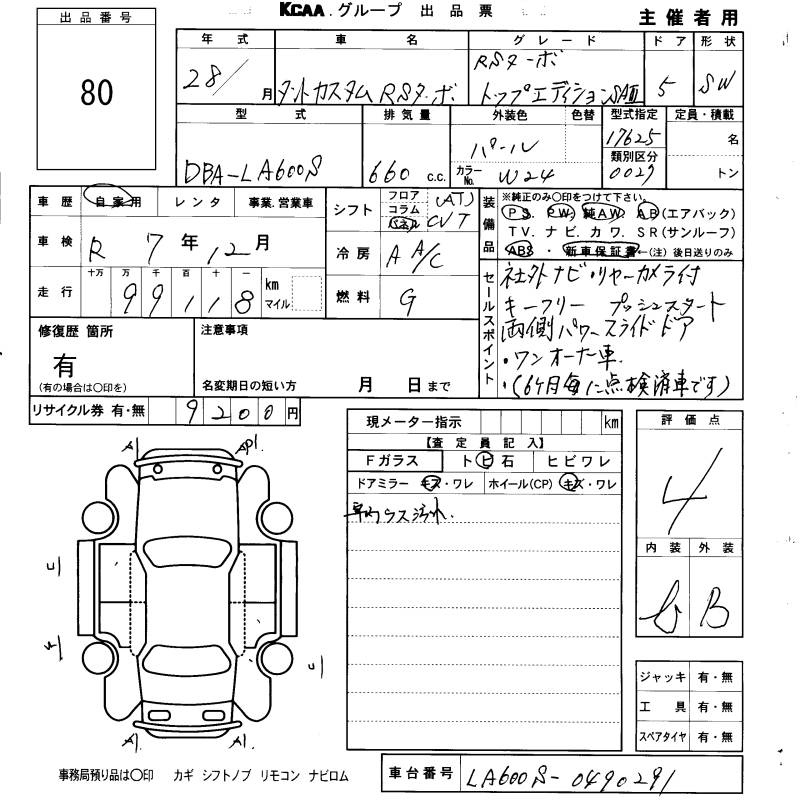 KCAA.グループ 出品票
主催者用
出品番号
80
年式 車名 グレード ドア 形状
28/月 タントカスタム RSターボ RSターボ
トップエディションSAⅢ 5 SW
型式 排気量 外装色 色替 型式指定 定員・積載
DBA-LA600S 660 c.c. パール 17625 名
カラーNo. W24 類別区分 0029 トン
車歴 自家用 レンタ 事業.営業車
シフト フロア コラム パネル (AT) CVT
装備品 ※純正のみ〇印をつけて下さい。
PS. PW. 純AW. AB(エアバック)
TV.ナビ.カワ.SR(サンルーフ)
ABS・新車保証書←(注)後日送りのみ
車検 R 7年12月
冷房 A A/C
走行 十万 万 千 百 十 一
99118 km マイル
燃料 G
セールスポイント
社外ナビ・リヤーカメラ付
キーフリー プッシュスタート
両側パワースライドドア
・ワンオーナー車.
・(6ケ月毎に点検済車です)
修復歴 箇所 注意事項
有
(有の場合は〇印を) 名変期日の短い方 月 日まで
リサイクル券 有・無 9200円
現メーター指示 km
【査定員記入】
Fガラス トビ石 ヒビワレ
ドアミラー キズ・ワレ ホイール(CP) キズ・ワレ
評価点
4
内装 外装
B
A1 AP1
A1 A1
ジャッキ 有・無
工具 有・無
スペアタイヤ 有・無
事務局預り品は〇印 カギ シフトノブ リモコン ナビロム
車台番号 LA600S-0490291